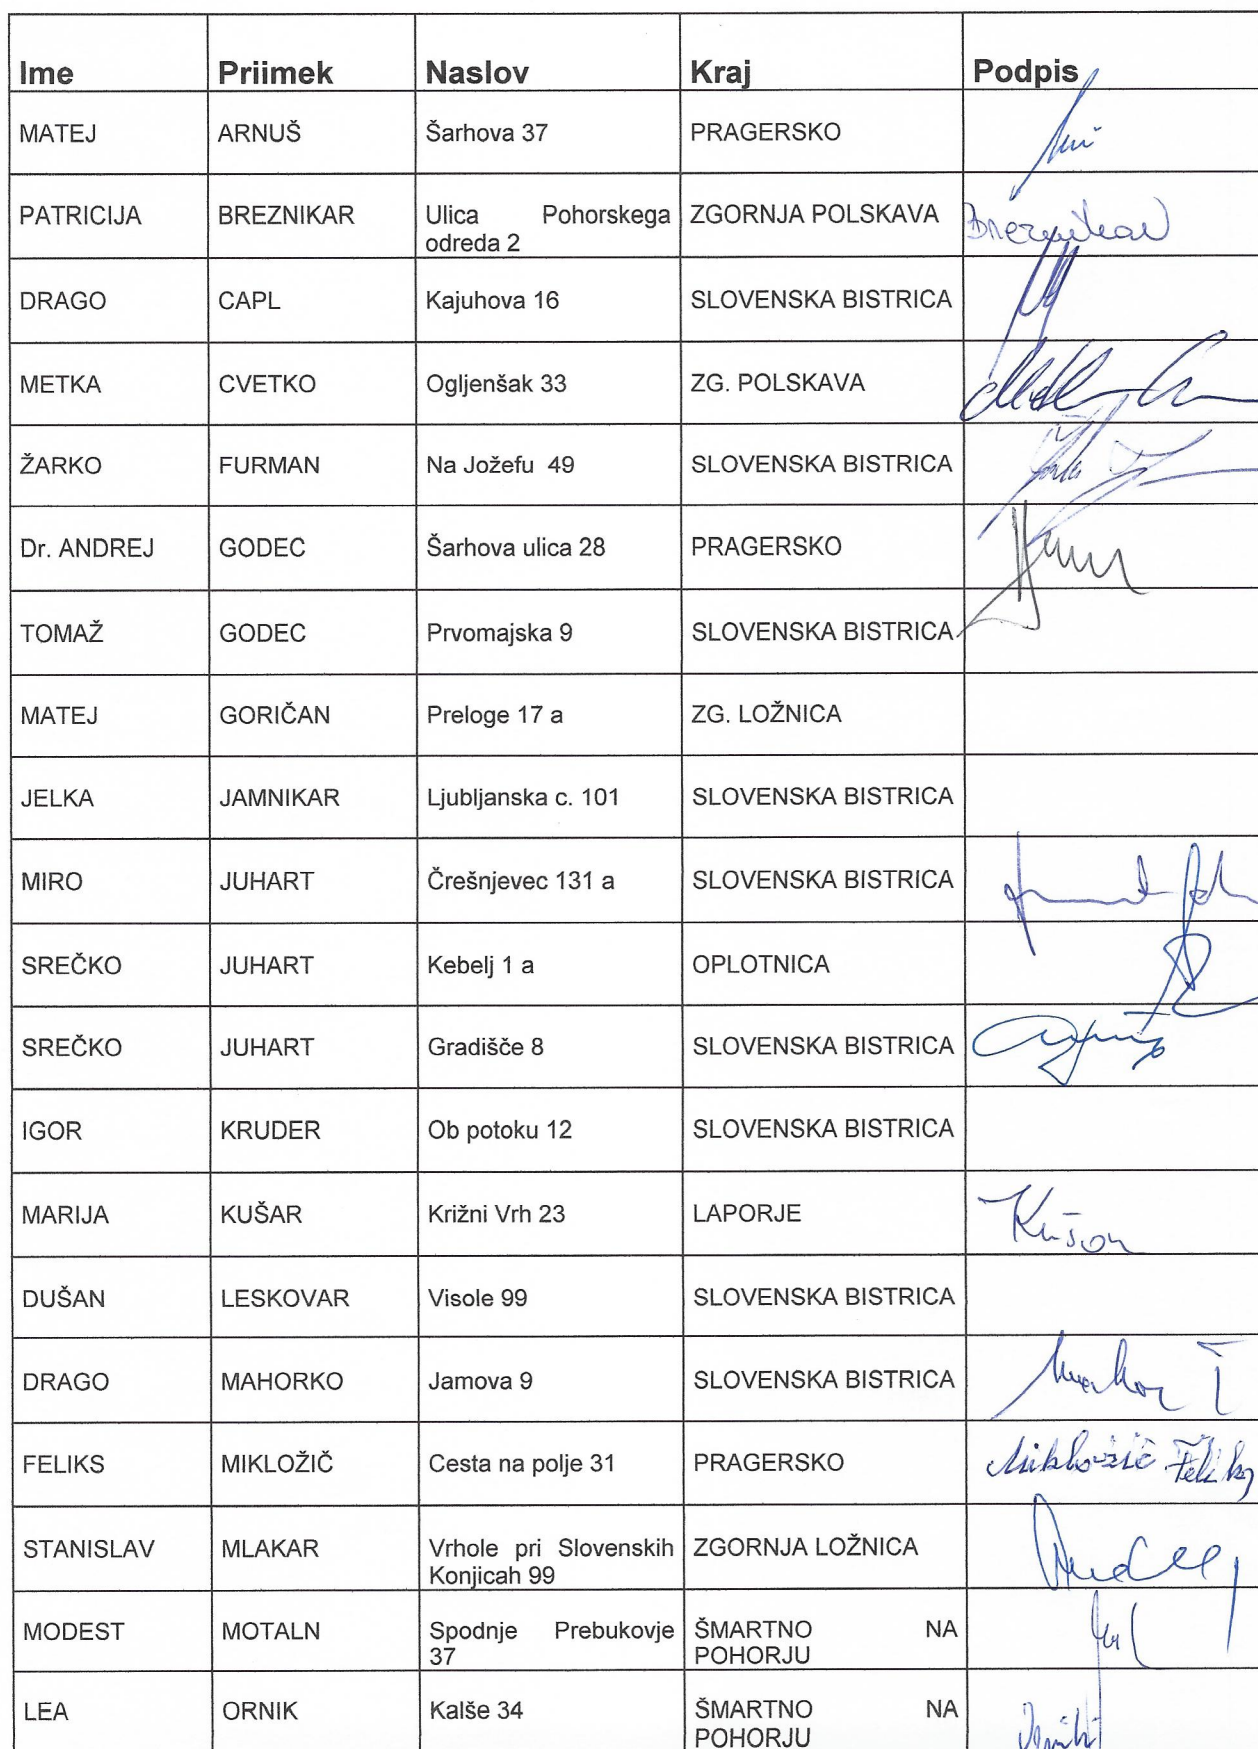 Ime Priimek Naslov Kraj Podpis
MATEJ ARNUŠ Šarhova 37 PRAGERSKO
PATRICIJA BREZNIKAR Ulica Pohorskega ZGORNJA POLSKAVA Breznikar
odreda 2
DRAGO CAPL Kajuhova 16 SLOVENSKA BISTRICA
METKA CVETKO Ogljenšak 33 ZG. POLSKAVA
ŽARKO FURMAN Na Jožefu 49 SLOVENSKA BISTRICA
Dr. ANDREJ GODEC Šarhova ulica 28 PRAGERSKO
TOMAŽ GODEC Prvomajska 9 SLOVENSKA BISTRICA
MATEJ GORIČAN Preloge 17 a ZG. LOŽNICA
JELKA JAMNIKAR Ljubljanska c. 101 SLOVENSKA BISTRICA
MIRO JUHART Črešnjevec 131 a SLOVENSKA BISTRICA
SREČKO JUHART Kebelj 1 a OPLOTNICA
SREČKO JUHART Gradišče 8 SLOVENSKA BISTRICA
IGOR KRUDER Ob potoku 12 SLOVENSKA BISTRICA
MARIJA KUŠAR Križni Vrh 23 LAPORJE Kušar
DUŠAN LESKOVAR Visole 99 SLOVENSKA BISTRICA
DRAGO MAHORKO Jamova 9 SLOVENSKA BISTRICA
FELIKS MIKLOŽIČ Cesta na polje 31 PRAGERSKO Mikložič Feliks
STANISLAV MLAKAR Vrhole pri Slovenskih ZGORNJA LOŽNICA
Konjicah 99
MODEST MOTALN Spodnje Prebukovje ŠMARTNO NA
37 POHORJU
LEA ORNIK Kalše 34 ŠMARTNO NA
POHORJU